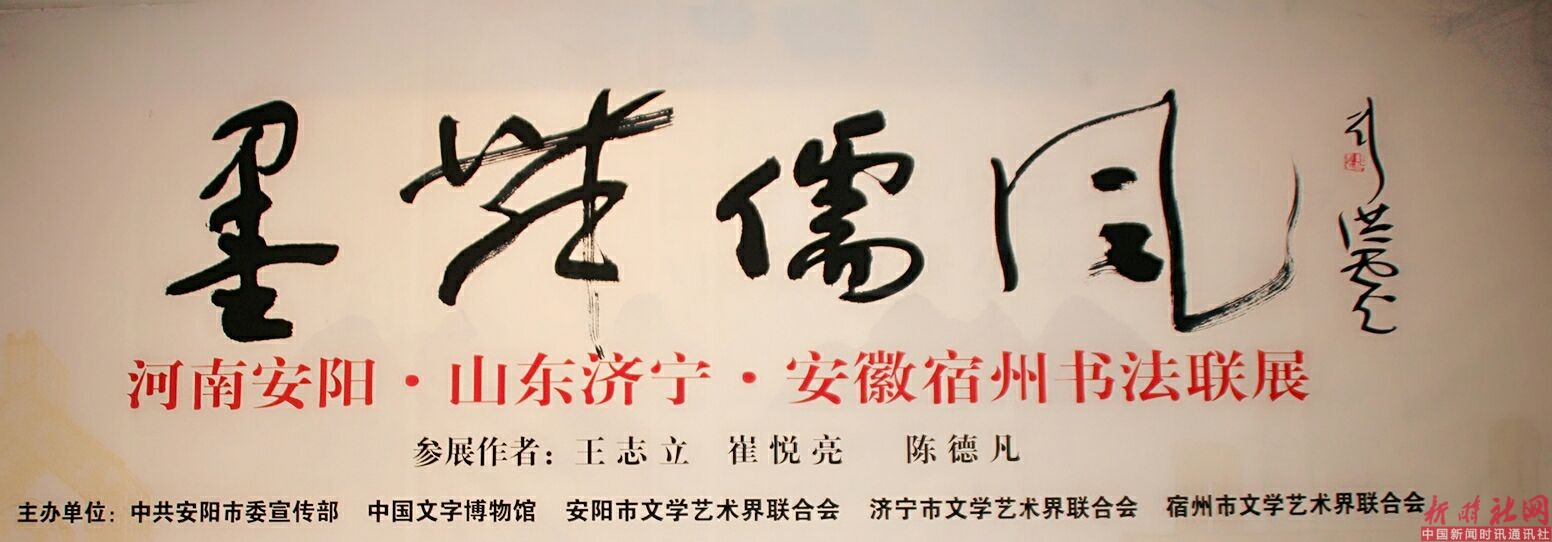 墨舞儒风
河南安阳·山东济宁·安徽宿州书法联展
参展作者：王志立 崔悦亮 陈德凡
主办单位：中共安阳市委宣传部 中国文字博物馆 安阳市文学艺术界联合会 济宁市文学艺术界联合会 宿州市文学艺术界联合会
新时社网
中国新闻时讯通讯社